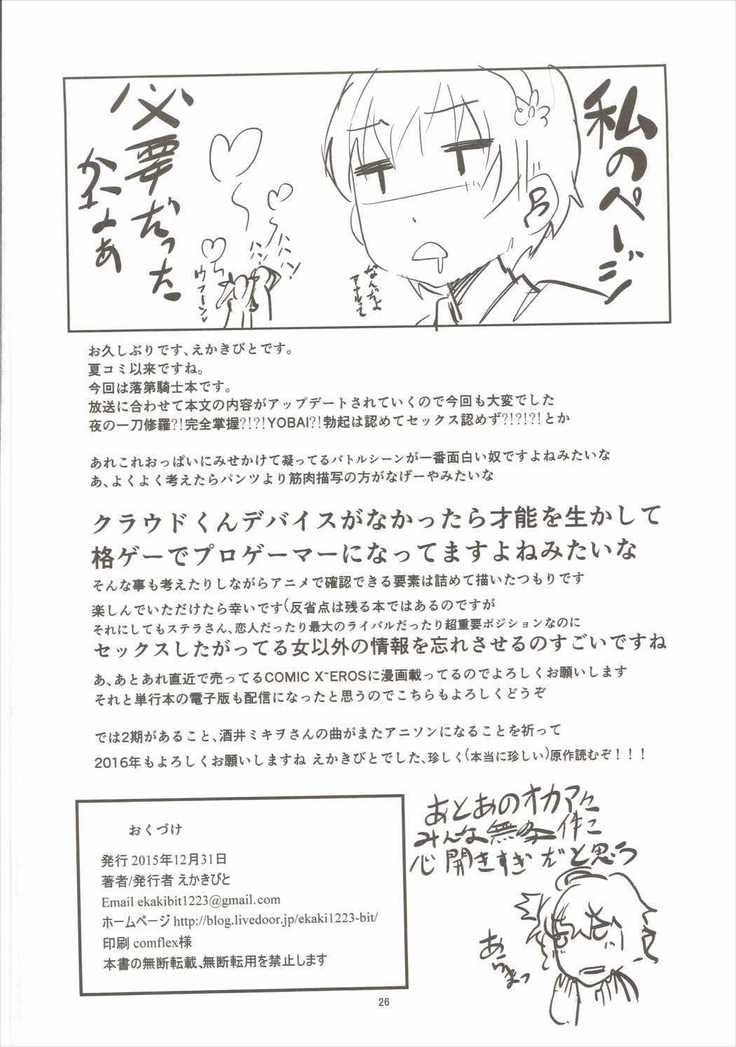 私のページ
必要だった
かなぁ
なんだよ
アナルて
ハン
ハハハン
ウフーン
お久しぶりです、えかきびとです。
夏コミ以来ですね。
今回は落第騎士本です。
放送に合わせて本文の内容がアップデートされていくので今回も大変でした
夜の一刀修羅?!完全掌握?!?!YOBAI?!勃起は認めてセックス認めず?!?!?!とか
あれこれおっぱいにみせかけて凝ってるバトルシーンが一番面白い奴ですよねみたいな
あ、よくよく考えたらパンツより筋肉描写の方がなげーやみたいな
クラウドくんデバイスがなかったら才能を生かして
格ゲーでプロゲーマーになってますよねみたいな
そんな事も考えたりしながらアニメで確認できる要素は詰めて描いたつもりです
楽しんでいただけたら幸いです(反省点は残る本ではあるのですが
それにしてもステラさん、恋人だったり最大のライバルだったり超重要ポジションなのに
セックスしたがってる女以外の情報を忘れさせるのすごいですね
あ、あとあれ直近で売ってるCOMIC X-EROSに漫画載ってるのでよろしくお願いします
それと単行本の電子版も配信になったと思うのでこちらもよろしくどうぞ
では2期があること、酒井ミキヲさんの曲がまたアニソンになることを祈って
2016年もよろしくお願いしますね えかきびとでした、珍しく(本当に珍しい)原作読むぞ!!!
おくづけ
発行 2015年12月31日
著者/発行者 えかきびと
Email ekakibit1223@gmail.com
ホームページ http://blog.livedoor.jp/ekaki1223-bit/
印刷 comflex様
本書の無断転載、無断転用を禁止します
あとあのオカマに
みんな無条件に
心開きすぎだと思う
あらまっ
26